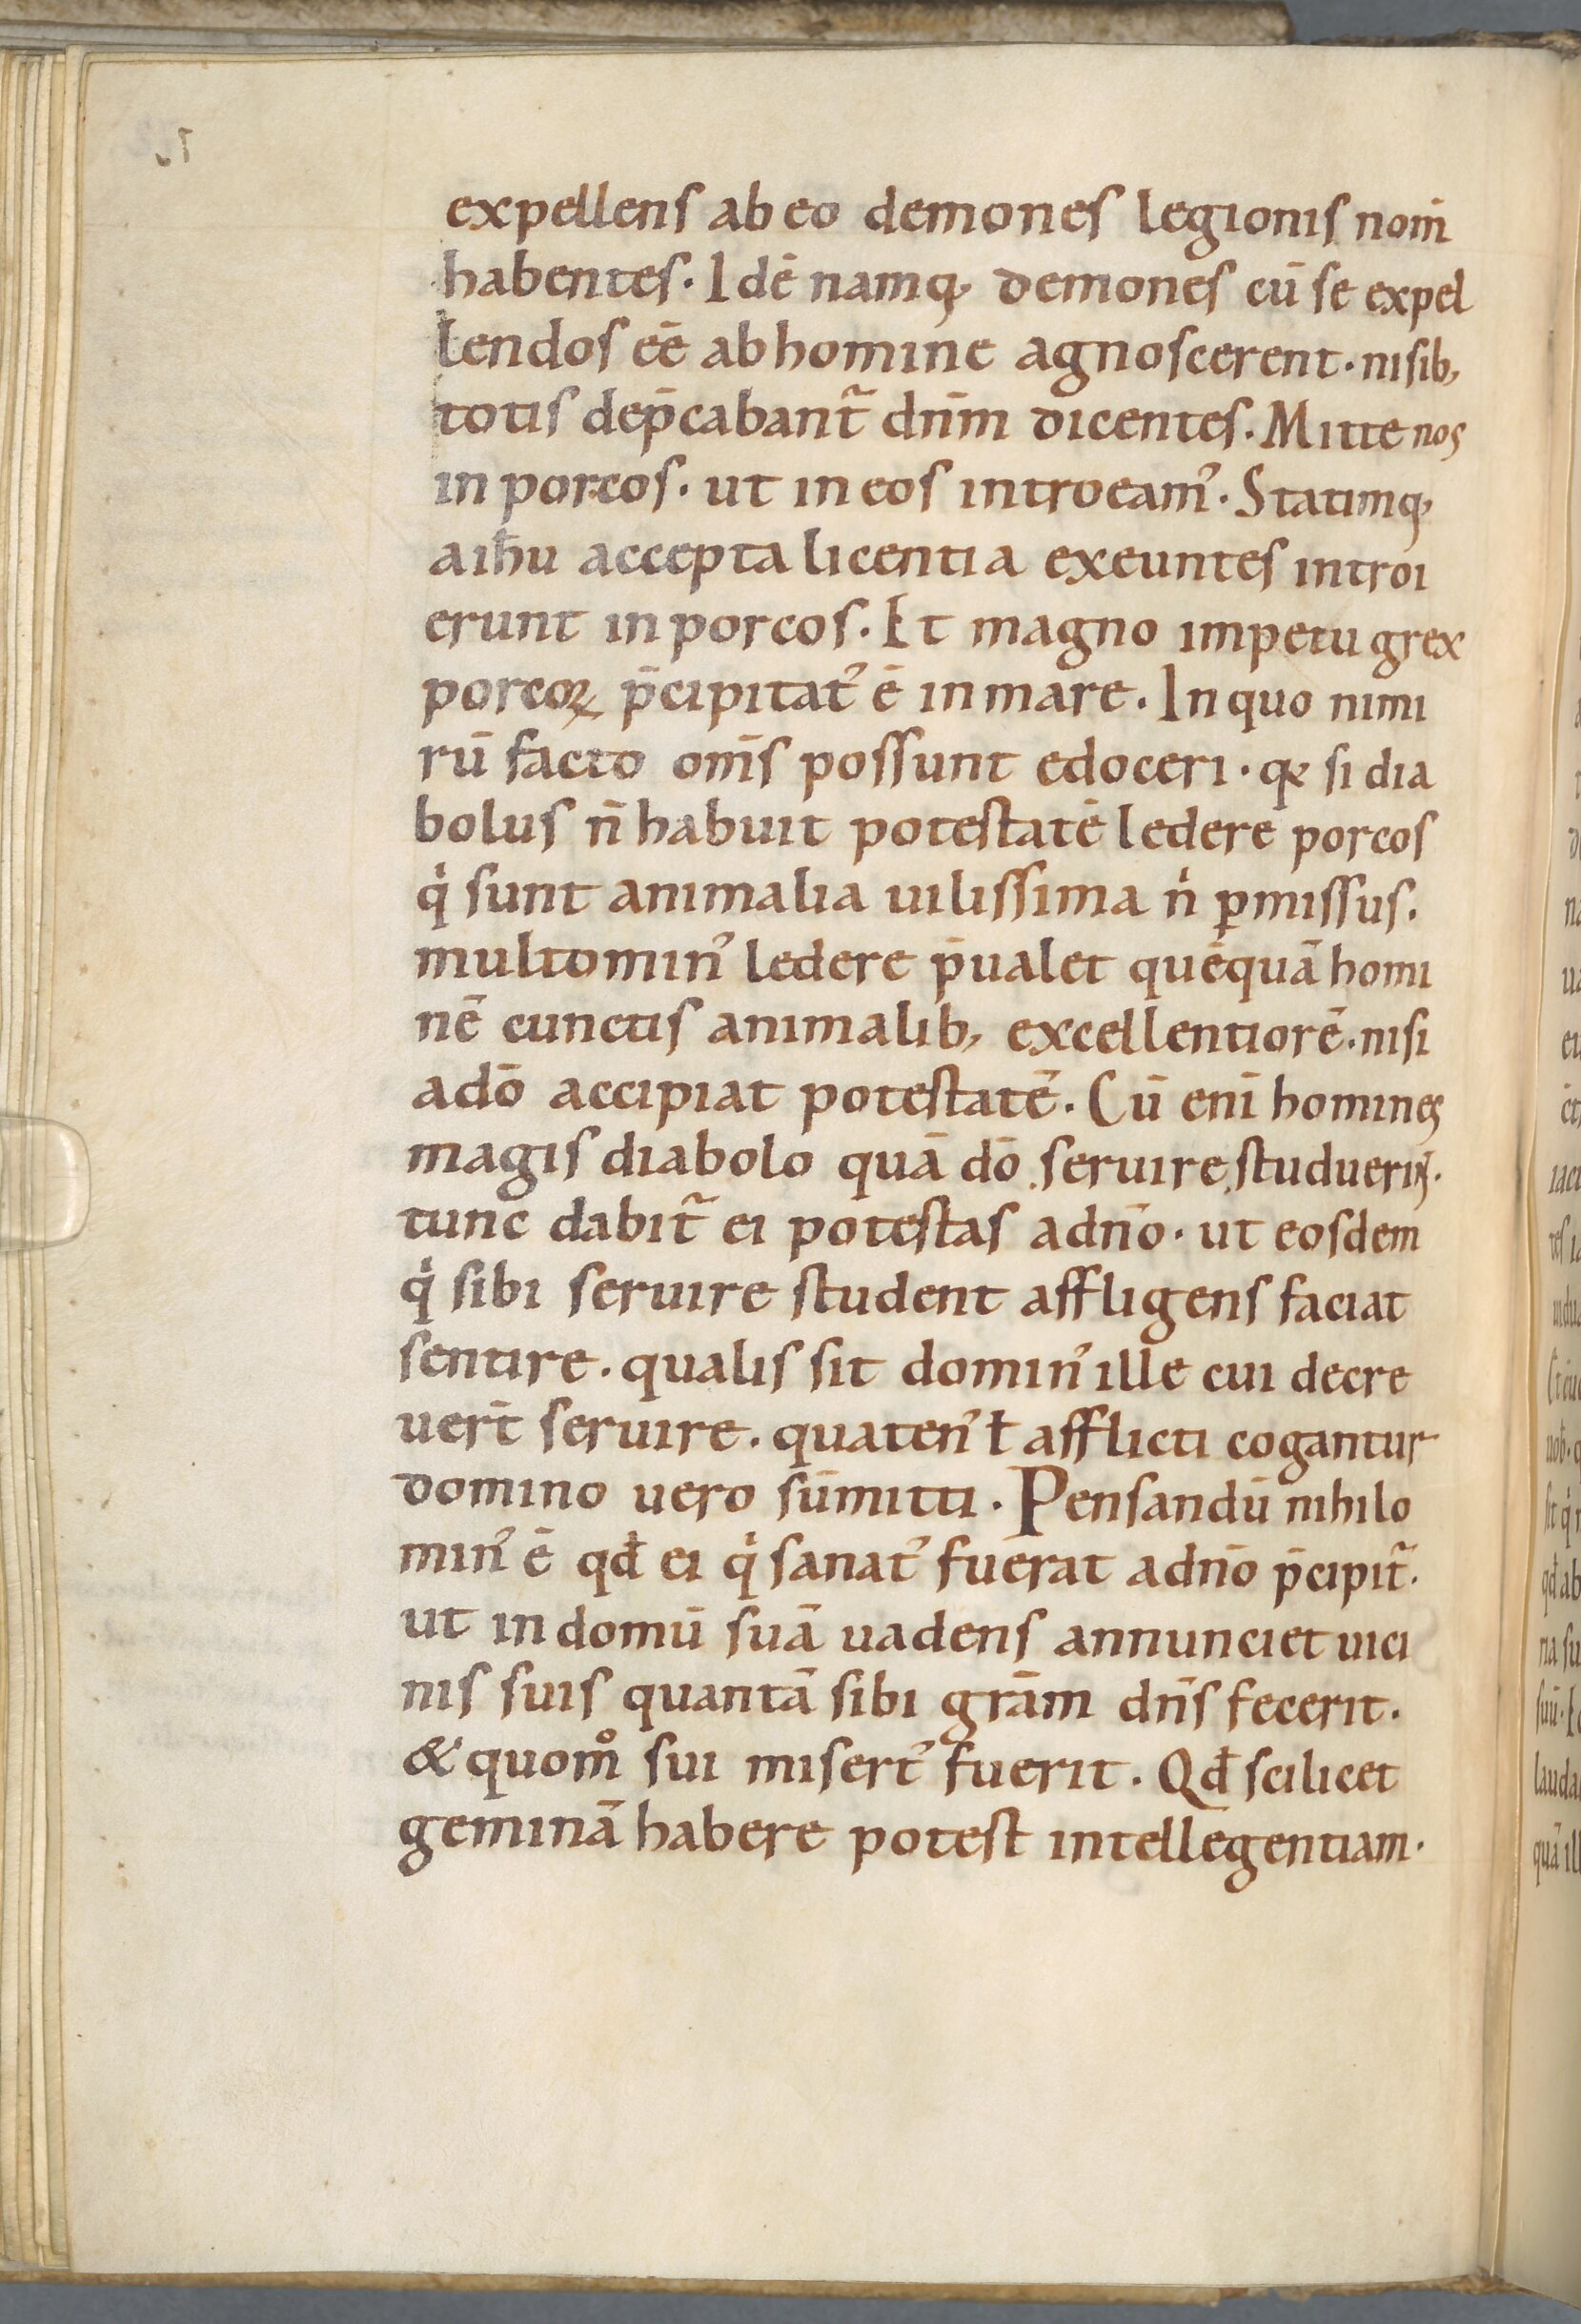 expellens ab eo demones legionis nom̄
habentes. Idē namq; demones cū se expel
lendos eē ab homine agnoscerent. nisib;
totis dep̄cabant᷑ dn̄m dicentes. Mitte nos
in porcos. ut in eos introeam᾽. Statimq;
a ih̄u accepta licentia exeuntes introi
erunt in porcos. Et magno impetu grex
porcoꝝ p̄cipitat᾽ ē in mare. In quo nimi
rū facto om̄s possunt edoceri. qꝛ si dia
bolus n̄ habuit potestatē ledere porcos
qͥ sunt animalia uilissima nͥ ꝑmissus.
multo min᾽ ledere p̄ualet quēquā homi
nē cunctis animalib; excellentiorē. nisi
a dō accipiat potestatē. Cū eni̅ homines
magis diabolo quā dō seruire studuerint.
tunc dabit᷑ ei potestas a dn̄o. ut eosdem
qͥ sibi seruire student affligens faciat
sentire. qualis sit domin᾽ ille cui decre
uer̄t seruire. quaten᾽ ł afflicti cogantur
domino uero sūmitti. Pensandū nihilo
min᾽ ē qđ ei qͥ sanat᾽ fuerat a dn̄o p̄cipit᷑.
ut in domū suā uadens annunciet uici
nis suis quantā sibi grām dn̄s fecerit.
& quom̊ sui misert᾽ fuerit. Qđ scilicet
geminā habere potest intellegentiam.